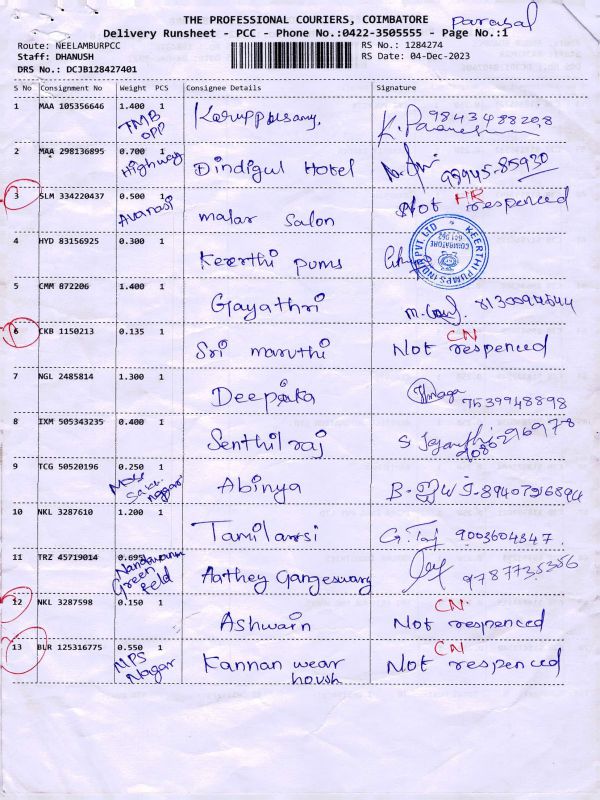 THE PROFESSIONAL COURIERS, COIMBATORE
Delivery Runsheet - PCC - Phone No.:0422-3505555 - Page No.:1
Route: NEELAMBURPCC RS No.: 1284274
Staff: DHANUSH RS Date: 04-Dec-2023
DRS No.: DCJB128427401
S No Consignment No Weight PCS Consignee Details Signature
1 MAA 105356646 1.400 1 Karuppusamy. 9843488208
TMB
OPP
2 MAA 298136895 0.700 1 Dindigul Hotel 95945-85930
Highway
3 SLM 334220437 0.500 1 malar salon HR
Avanasi Not respenced
4 HYD 83156925 0.300 1 Keerthi pums
KEERTHI PUMPS INDIA PVT. LTD
COIMBATORE
641 062
5 CMM 872206 1.400 1 Gayathri
6 CKB 1150213 0.135 1 Sri maruthi CN
Not respenced
7 NGL 2485814 1.300 1 Deepika 7539948898
8 IXM 505343235 0.400 1 Senthil raj
9 TCG 50520196 0.250 1 Abinya
10 NKL 3287610 1.200 1 Tamilarasi 9003604347.
11 TRZ 45719014 0.695 1 Aathey Gangeswary 9787735356
Green
Feld
12 NKL 3287598 0.150 1 Ashwain CN.
Not respenced
13 BLR 125316775 0.550 1 Kannan wear CN
Nagar housh Not respenced